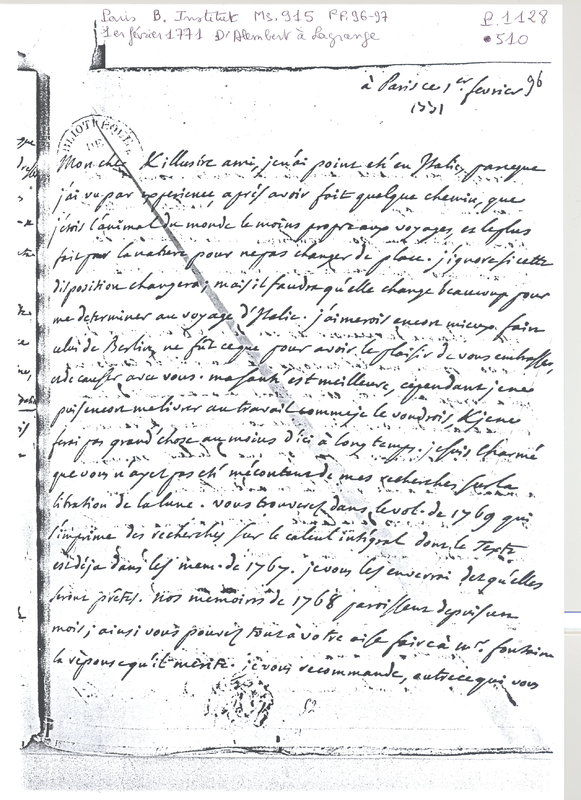 Paris B. Institut Ms. 915 PP. 96-97
1er février 1771 D'Alembert à Lagrange
P. 1128
•510
à Paris ce 1er fevrier 96
1771
BLIOTHEQUE
DE
Mon cher & illustre ami, je n'ai point eté en Italie, parceque
j'ai vu par experience, après avoir fait quelque chemin, que
j'etois l'animal du monde le moins propre aux voyages, et le plus
fait par la nature pour ne pas changer de place. j'ignore si cette
disposition changera; mais il faudra qu'elle change beaucoup pour
me determiner au voyage d'Italie. j'aimerois encor mieux faire
celui de Berlin, ne fût ce que pour avoir le plaisir de vous embrasser
et de causer avec vous. ma santé est meilleure, cependant je ne
puis encor me livrer au travail comme je le voudrois & je ne
ferai pas grand'chose au moins d'ici à long temps. je suis charmé
que vous n'ayez pas eté mécontent de mes recherches sur la
libration de la lune. vous trouverez dans le vol. de 1769 qui
s'imprime des recherches sur le calcul intégral dont le texte
est déja dans les mem. de 1767. je vous les enverrai des qu'elles
seront prêtes. nos mémoires de 1768 paroissent depuis un
mois; ainsi vous pouvez tout à votre aise faire à mr. fontaine
la réponse qu'il mérite. je vous recommande, outre ce qui vous